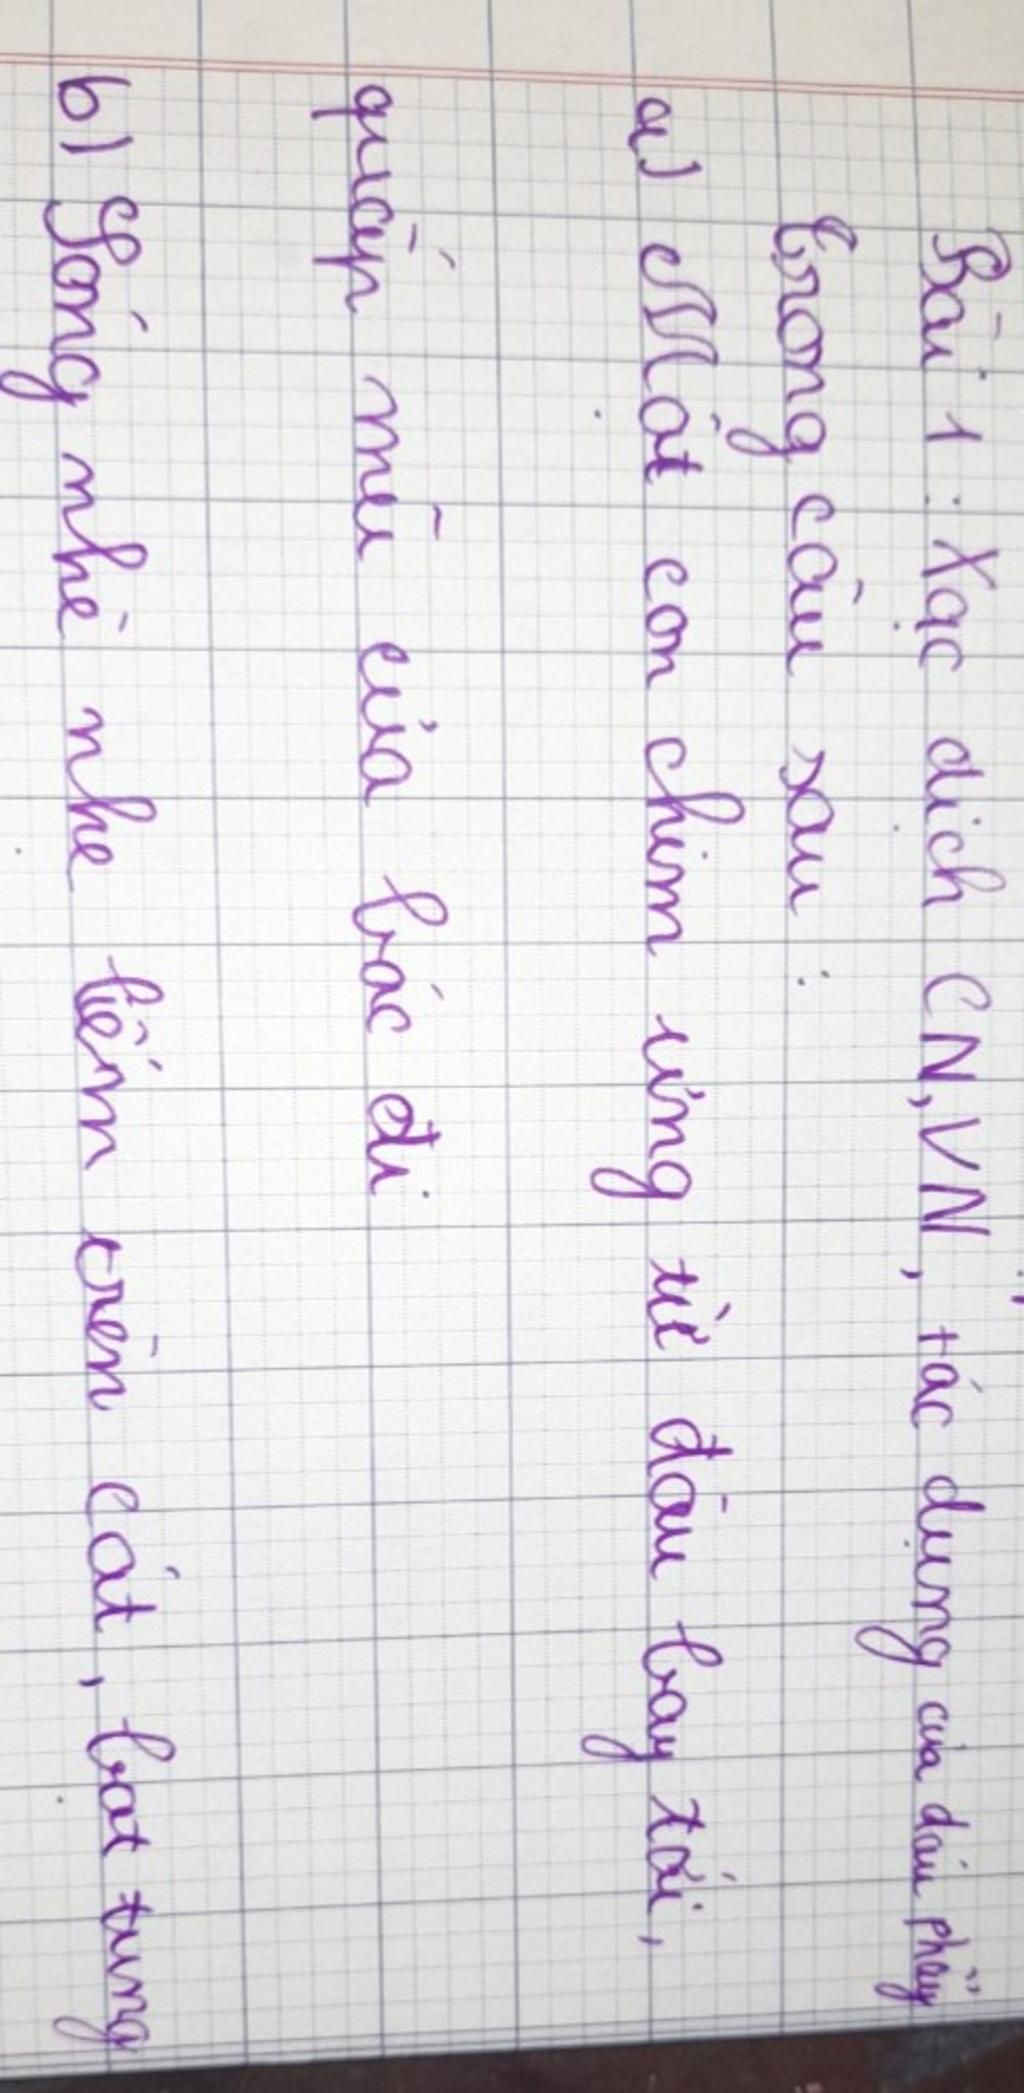 Bài 1 : Xạc dịch CN, VN, tác dụng của dấu phẩy
trong câu sau :
a) Một con chim ưng từ đâu bay tới,
quắp mũ của bác đi
b) Sóng nhè nhẹ liếm trên cát, bạt tung